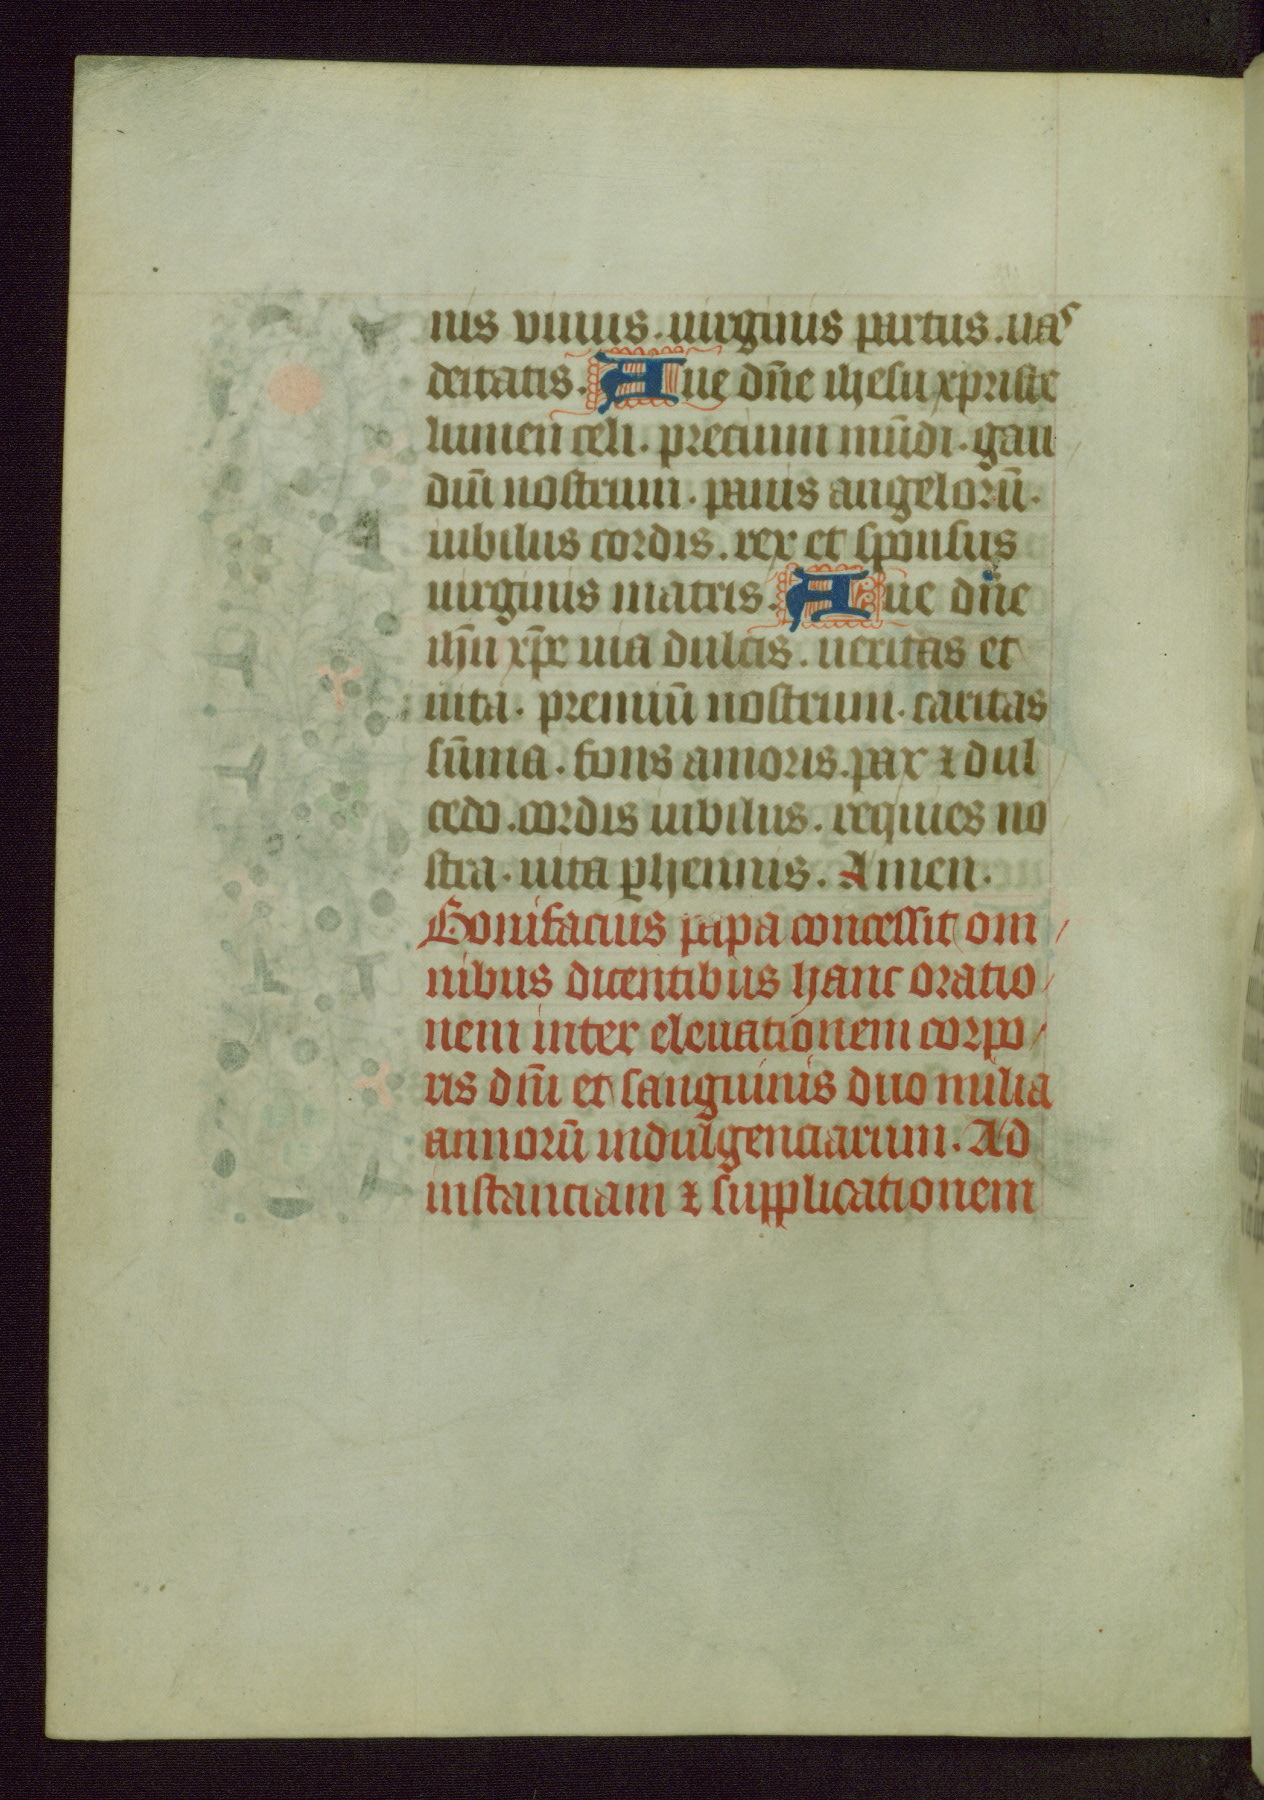 nis viuus. uirginis partus. uas
deitatis. Aue dn̄e ihesu xpriste
lumen celi. precium mūdi. gau
diū nostrum. panis angelorū.
iubilus cordis. rex et sponsus
uirginis matris. Aue dn̄e
ihū xp̄e uia dulcis. ueritas et
uita. premiū nostrum. caritas
sūma. fons amoris. pax ⁊ dul
cedo. cordis iubilus. requies no
stra. uita ꝑhennis. Amen.
Bonifacius papa concessit om
nibus dicentibus hanc oratio
nem inter eleuationem corpo
ris dn̄i et sanguinis duo milia
annorū indulgenciarum. Ad
instanciam ⁊ supplicationem